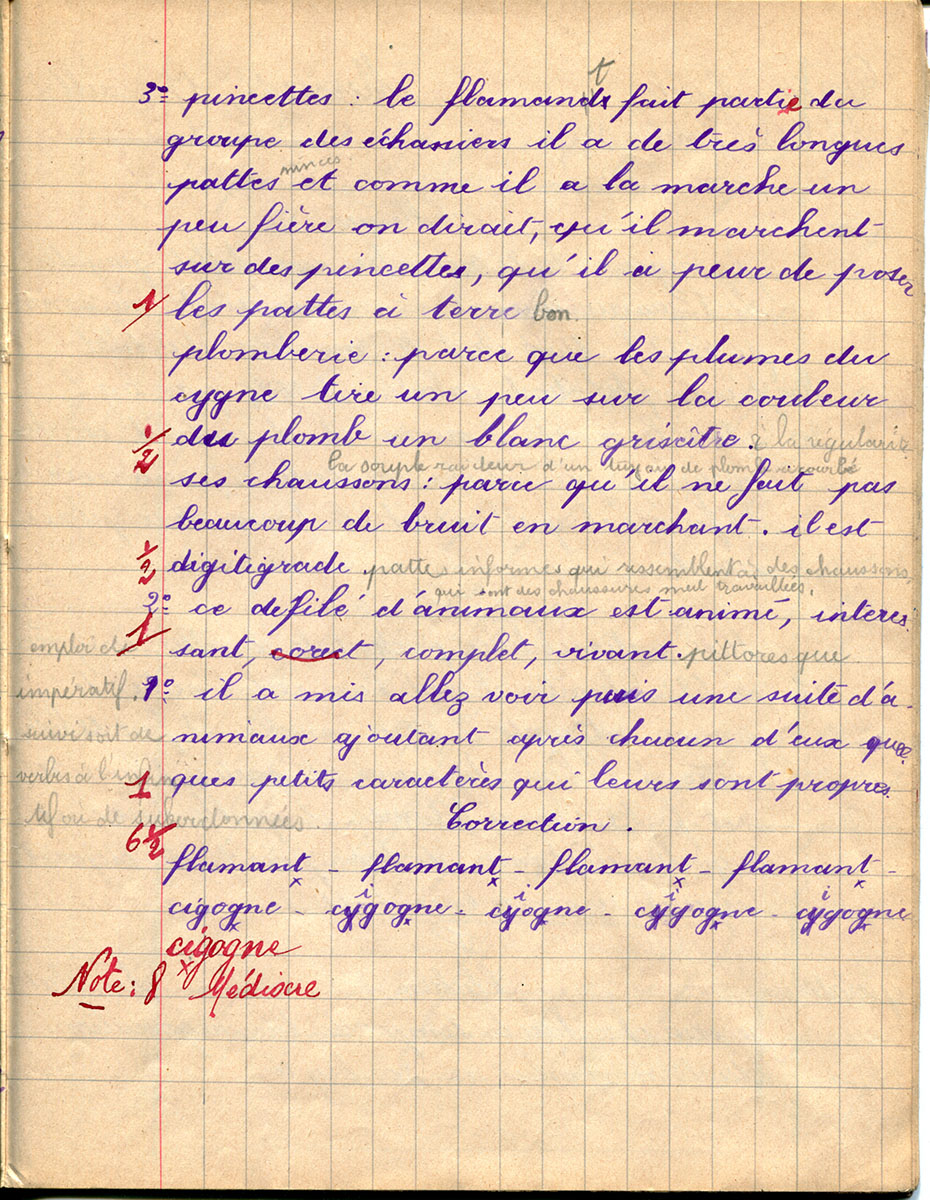 t
3º pincettes : le flamand fait partie du
groupe des échassiers il a de très longues
minces
pattes et comme il a la marche un
peu fière on dirait, qu'il marchent
sur des pincettes, qu'il à peur de poser
1 les pattes à terre bon.
plomberie : parce que les plumes du
cygne tire un peu sur la couleur
1/2 du plomb un blanc grisâtre. à la régulari
la souple raideur d'un tuyau de plomb recourbé
ses chaussons : parce qu'il ne fait pas
beaucoup de bruit en marchant. il est
1/2 digitigrade. pattes informes qui ressemblent à des chaussons,
qui sont des chaussures mal travaillées.
2º ce defilé d'animaux est animé, intéres
1 sant, corect, complet, vivant. pittoresque
1º il a mis allez voir puis une suite d'a-
nimaux ajoutant après chacun d'eux quel
1 ques petits caractères qui leurs sont propres.
emploi de
impératif.
suivi soit de
verbes à l'infini
tif ou de subordonnées.
Correction.
6 1/2
flamant - flamant - flamant - flamant -
i i i i
cigogne - cygogne - cyogne - cygogne - cygogne
cigogne
Note : 8 Médiocre